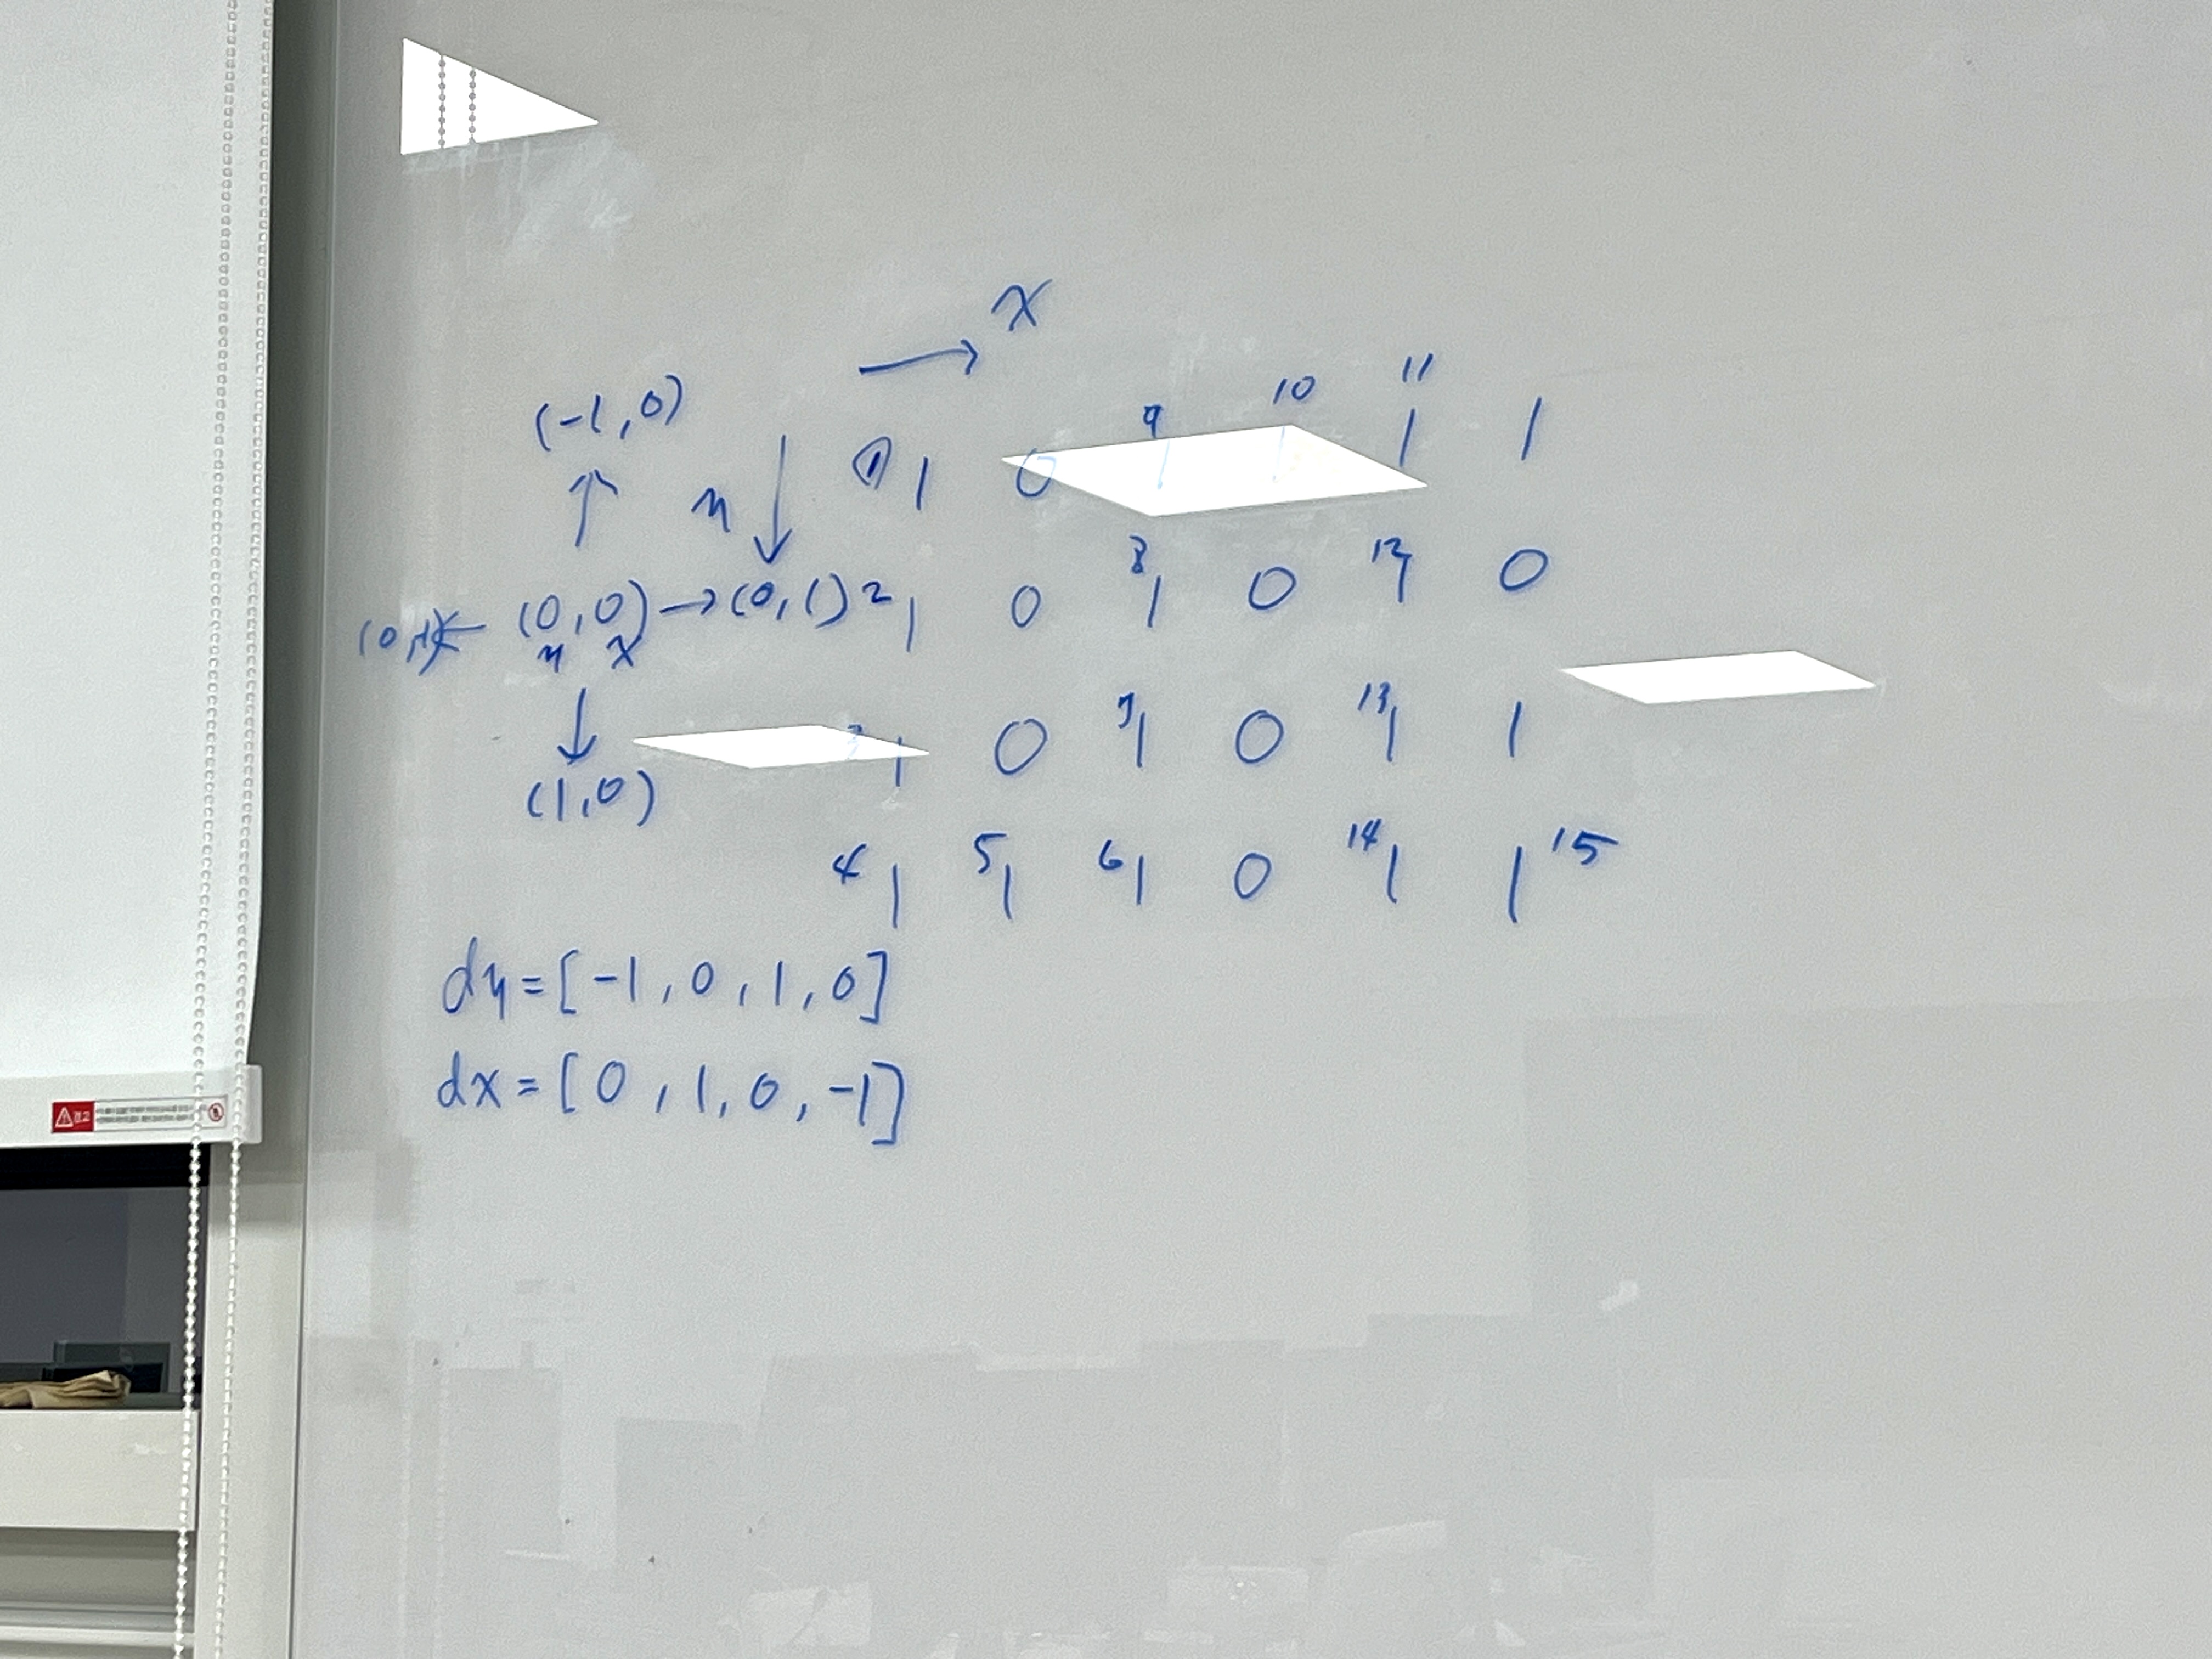 x
(-1,0) 9 10 11
y ① 1 0 1 1 1 1
8 12
(0,-1) ← (0,0) → (0,1) 2 1 0 1 0 1 0
y x
3 1 0 7 1 0 13 1 1
(1,0)
4 1 5 1 6 1 0 14 1 1 15
dy=[-1,0,1,0]
dx=[0,1,0,-1]
경고